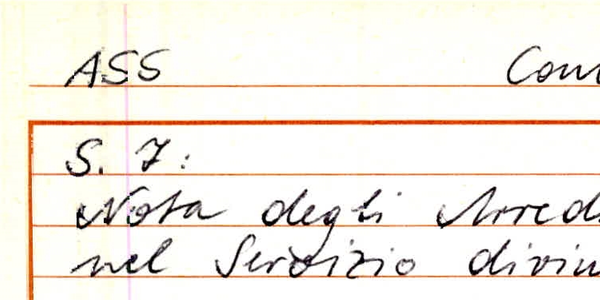 ASS Com
S. 7:
Nota degli Arred
nel Servizio divin